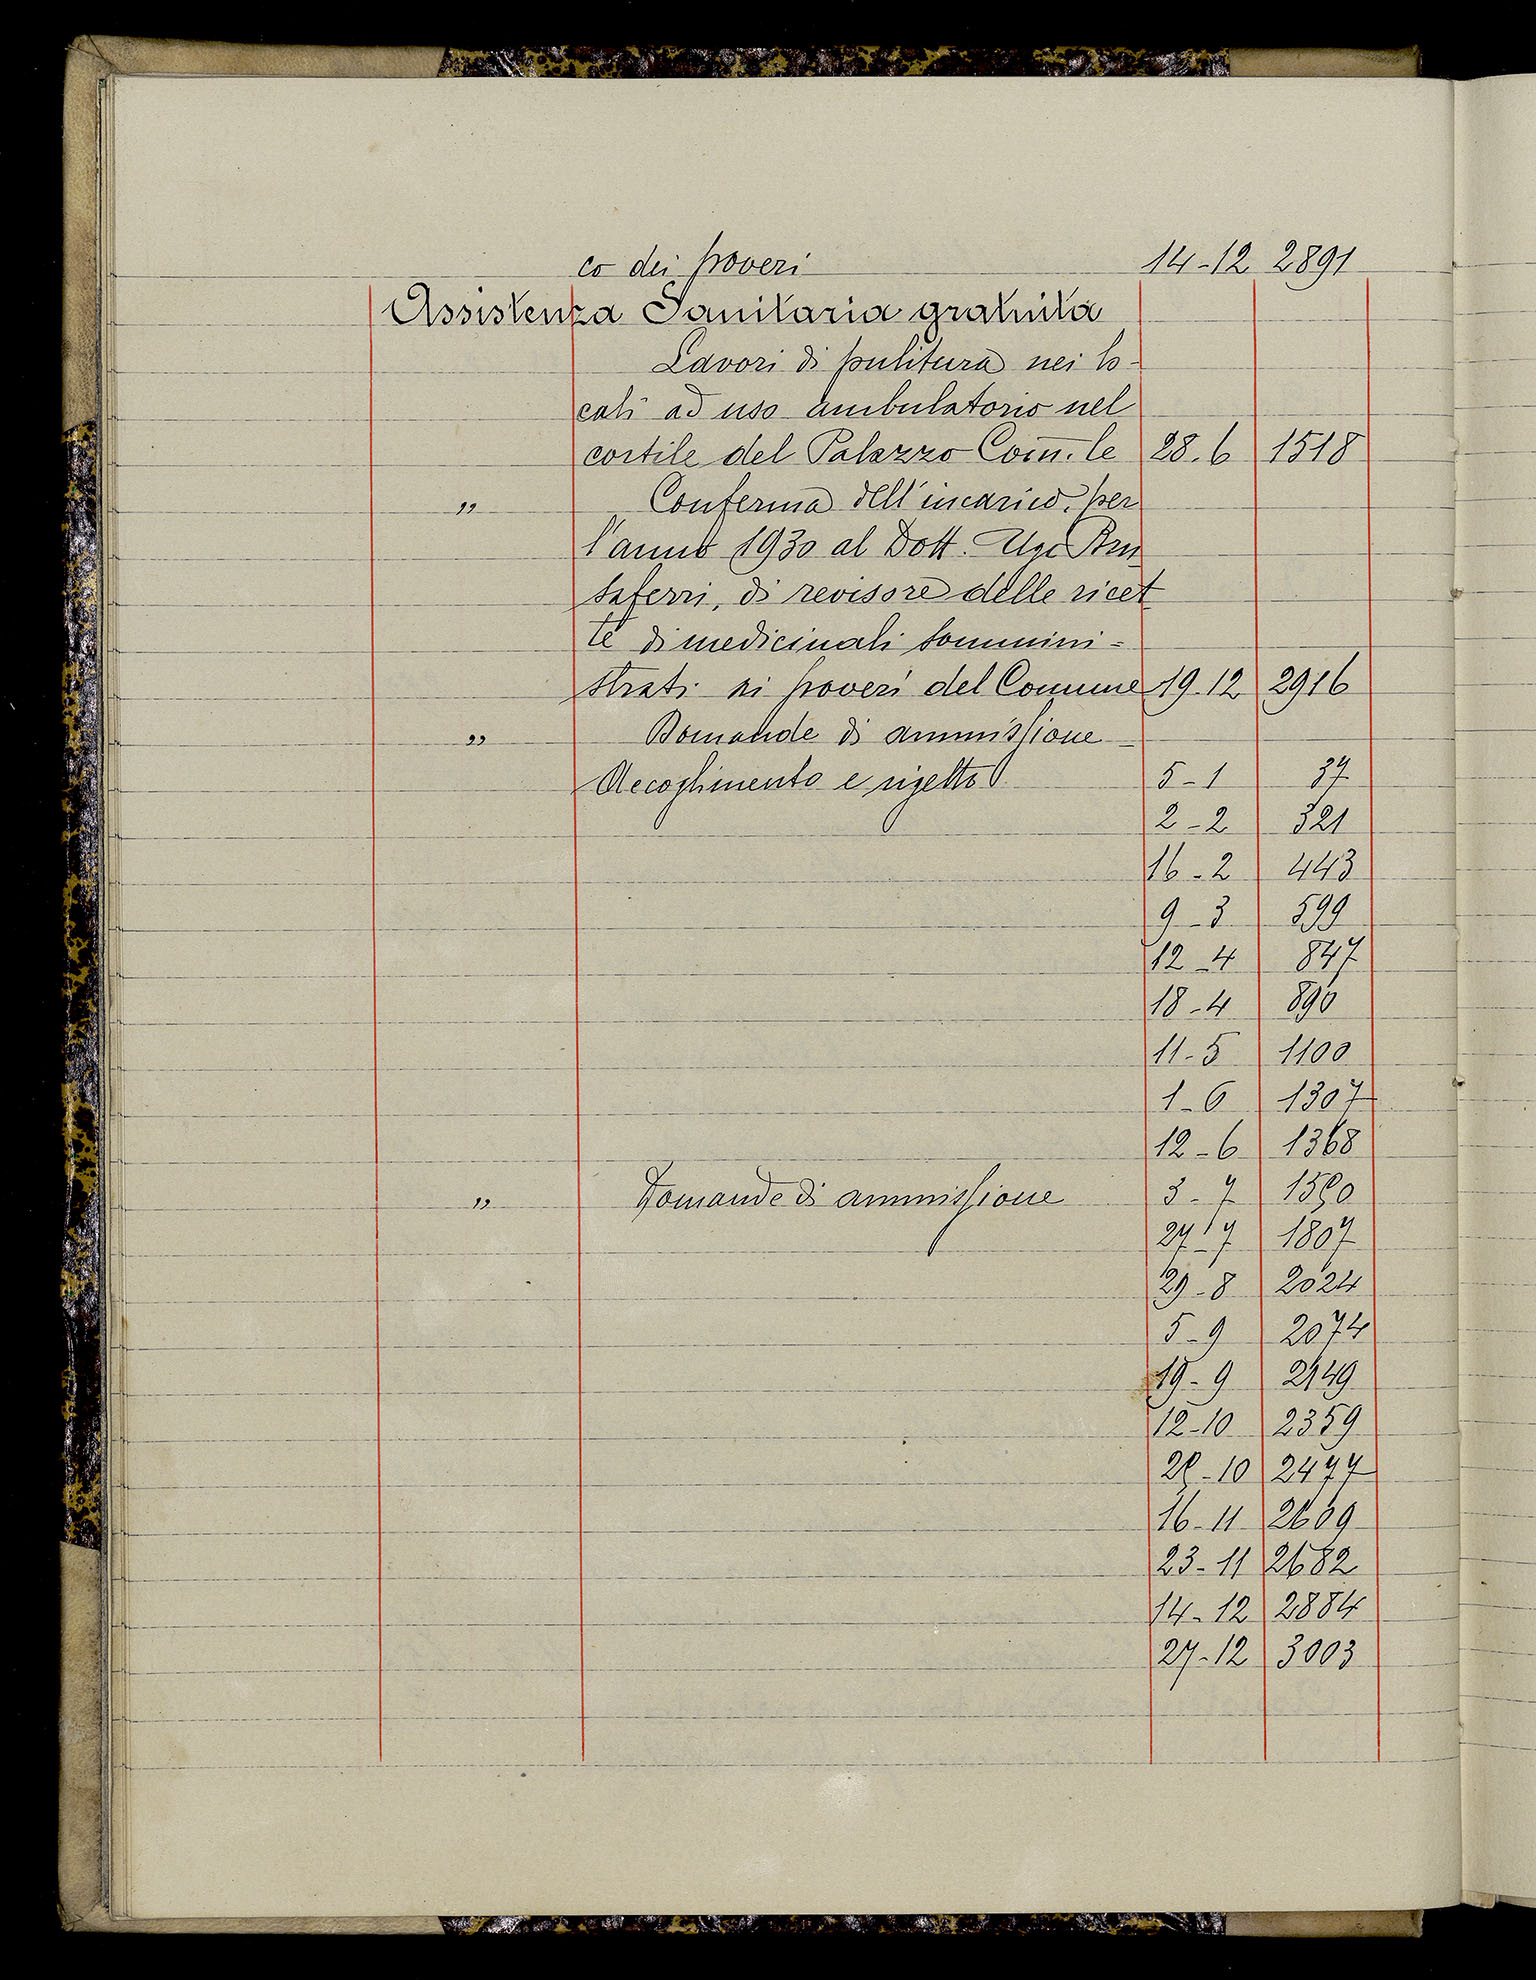 co dei poveri 14-12 2891
Assistenza Sanitaria gratuita
Lavori di pulitura nei lo-
cali ad uso ambulatorio nel
cortile del Palazzo Com.le 28.6 1518
" Conferma dell'incarico, per
l'anno 1930 al Dott. Ugo Bru
saferri, di revisore delle ricet
te di medicinali sommini=
strati ai poveri del Comune 19.12 2916
" Domande di ammissione -
Accoglimento e rigetto 5-1 37
2-2 321
16-2 443
9-3 599
12-4 847
18-4 890
11-5 1100
1-6 1307
12-6 1368
" Domande di ammissione 3-7
27-7 1807
29-8 2024
5-9 2074
19-9 2149
12-10 2359
2477
16-11 2609
23-11 2682
14-12 2884
27-12 3003